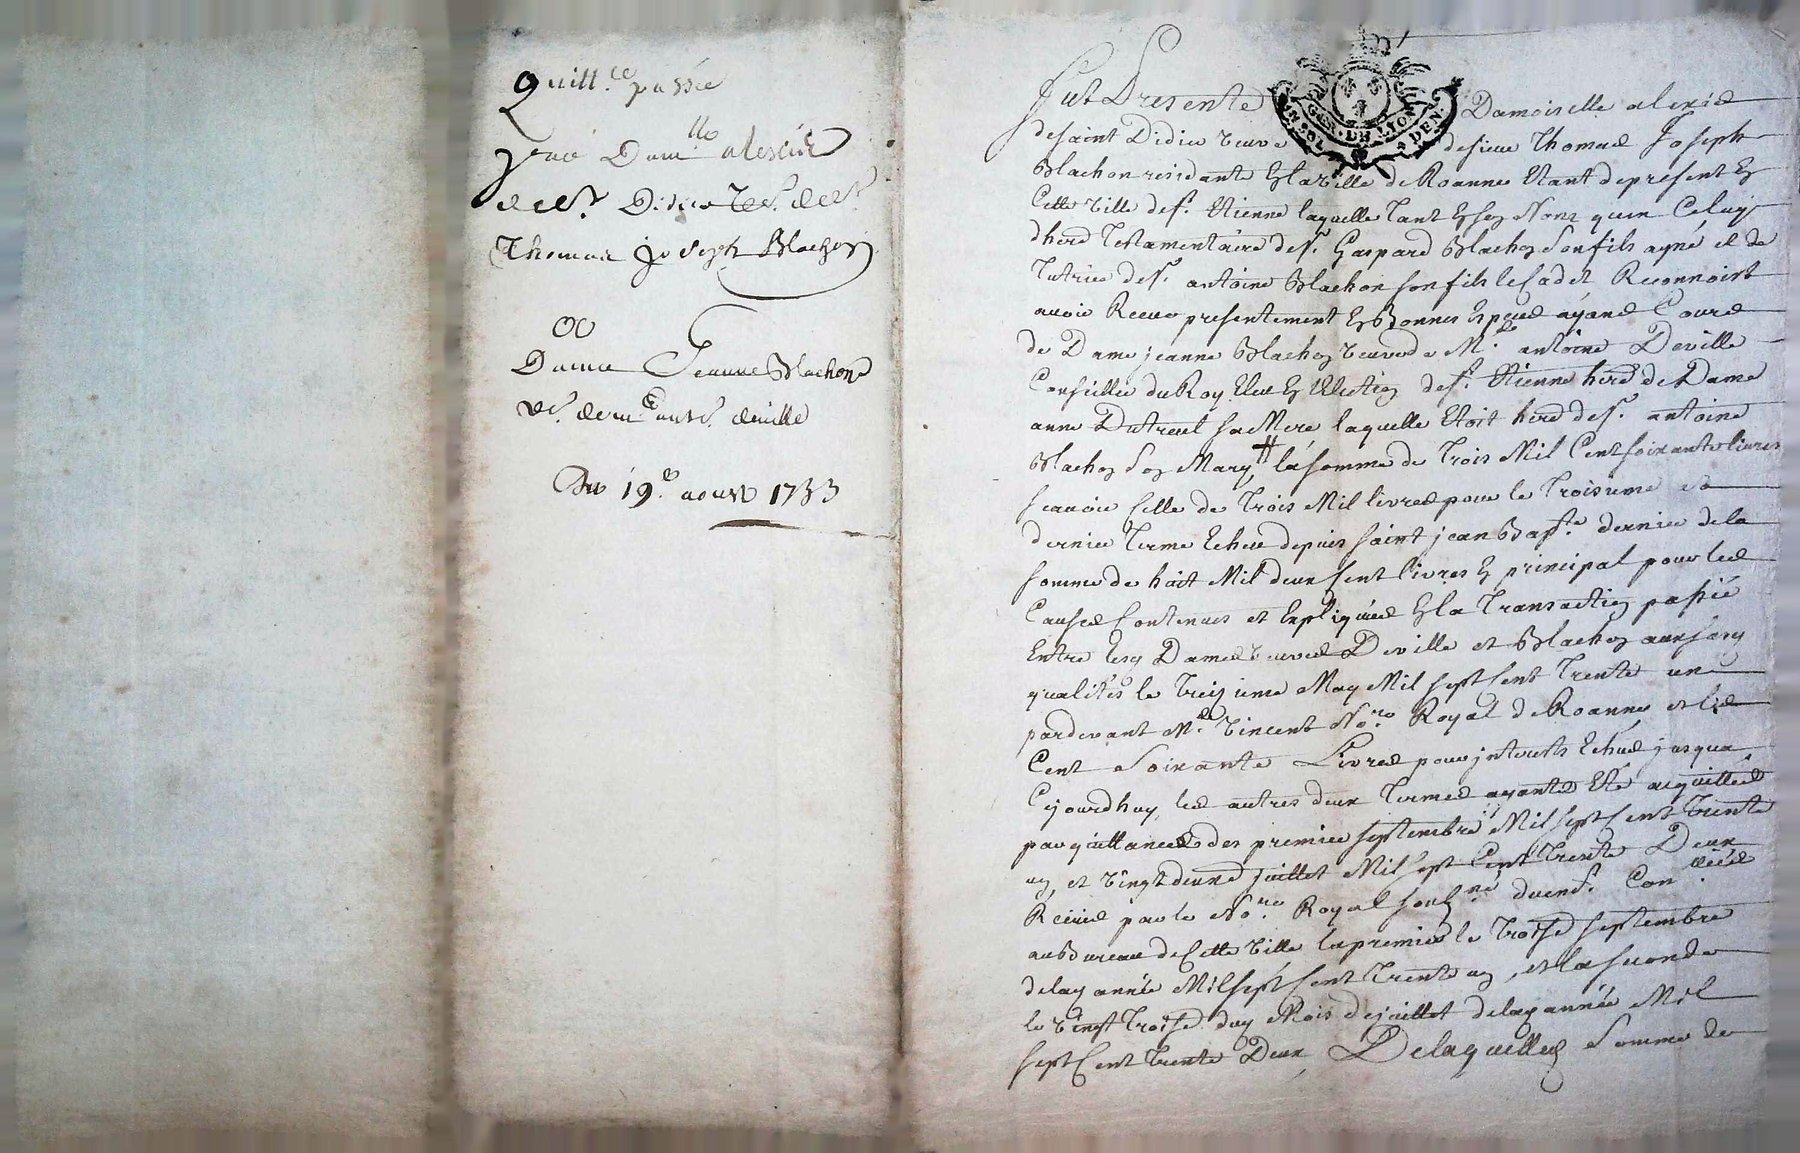 Quitt.ce passée
par Dam.lle alexise
de St. Didier ve. de Sr.
Thomas Joseph Blachon
a
Dame Jeanne Blachon
ve. de me. ant. deville
Du 19.e aoust 1733
GEN. DE LION
Fut Presente Damoiselle alexise
de saint Didier veuve de sieur Thomas Joseph
Blachon residante en la ville de Roanne Etant de present en
Cette ville de St. Etienne laquelle tant en son Nom qu'en Celuy
d'here Testamentaire de Sr. Gaspard Blachon son fils ayné et de
Tutrice de Sr. antoine Blachon son fils le Cadet Reconnoist
avoir Receu presentement en Bonnes Especes ayans Cours
de Dame jeanne Blachon veuve de Me. antoine Deville
Conseiller du Roy Eleu en l'Election de St. Etienne here de Dame
anne Dutreul sa Mere laquelle Etoit here de Sr. antoine
Blachon son Mary # la somme de Trois Mil Cent soixante livres
scavoir Celle de Trois Mil livres pour le Troisieme et
dernier Terme Echeu depuis saint jean Bapte. dernier de la
somme de huit Mil deux Cent livres en principal pour les
Causes Contenues et Expliquées en la Transaction passée
Entre lesd. Dames veuves Deville et Blachon auxd.
qualités le Treizieme May Mil sept Cent Trente un
pardevant Me. Vincent No.re Royal de Roanne et les
Cent Soixante Livres pour interests Echus jusqua
Cejourdhuy, les autres deux Termes ayants Eté acquittés
par quittances des premier septembre Mil sept Cent Trente
un, et vingt deux juillet Mil sept Cent Trente Deux
Receues par le No.re Royal soubz.né
au Bureau de Cette ville la premiere le Trois septembre
de lad. année Mil sept Cent Trente un, et la seconde
le vingt Trois dud. Mois de juillet de lad. année Mil
sept Cent Trente Deux, De laquelle Somme de